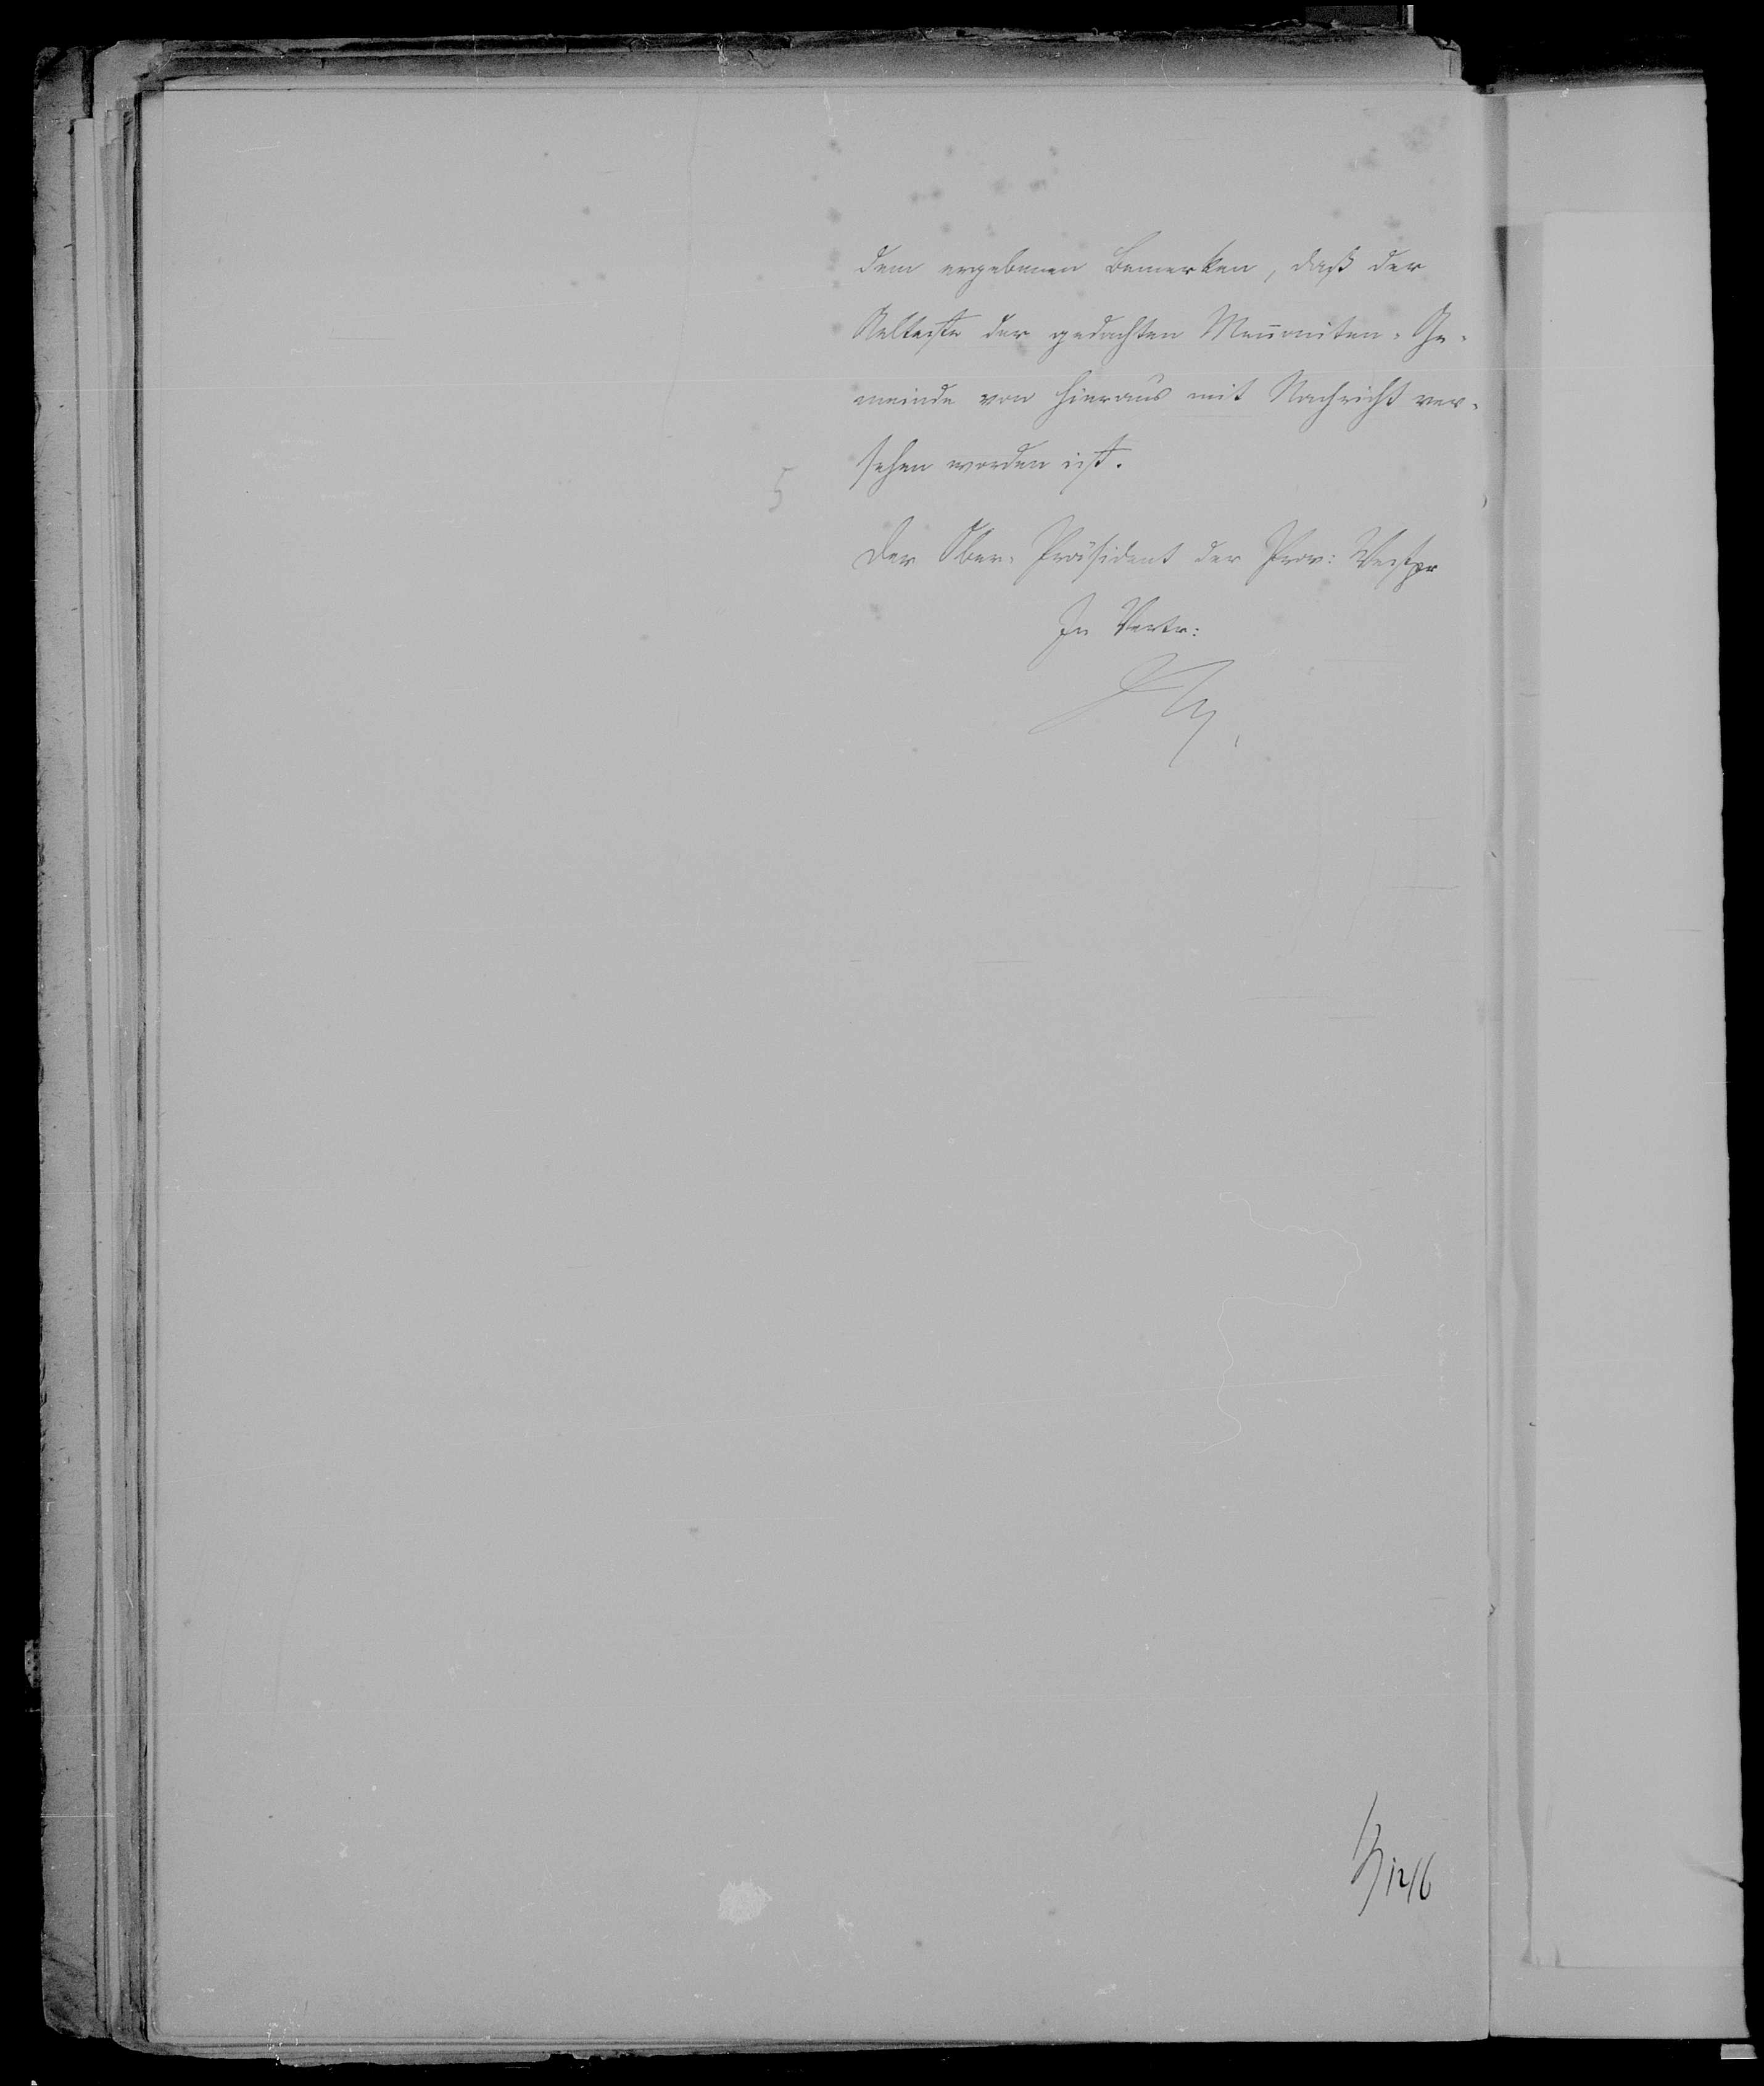 dem ergebenen Bemerken, daß der
Aelteste der gedachten Men̄oniten-Ge-
meinde von hieraus mit Nachricht ver-
sehen worden ist.
5
Der Ober-Präsident der Prov: Westpr
In Vertr:
12/6